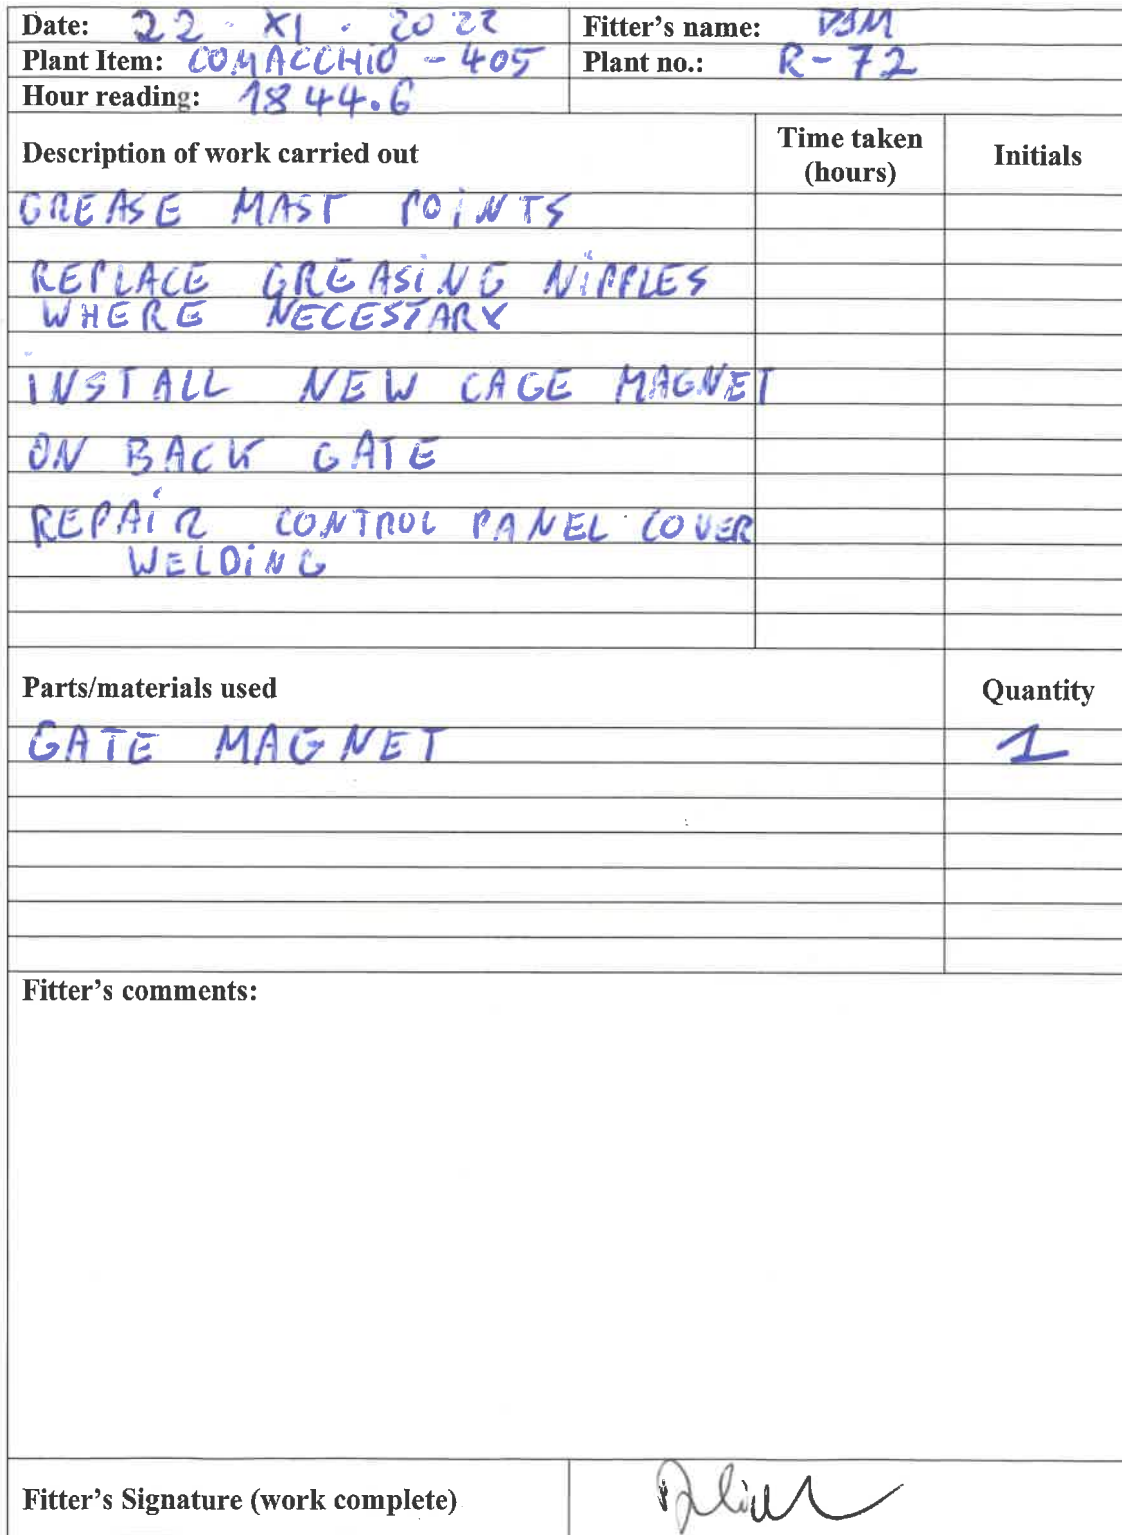 Date: 22 · XI · 2022 Fitter's name: DJM
Plant Item: COMACCHIO - 405 Plant no.: R-72
Hour reading: 1844.6
Description of work carried out Time taken (hours) Initials
GREASE MAST POiNTS
REPLACE GREASiNG NiPPLES
WHERE NECESTARY
iNSTALL NEW CAGE MAGNET
ON BACK GATE
REPAiR CONTROL PANEL COVER
WELDiNG
Parts/materials used Quantity
GATE MAGNET 1
Fitter's comments:
Fitter's Signature (work complete)